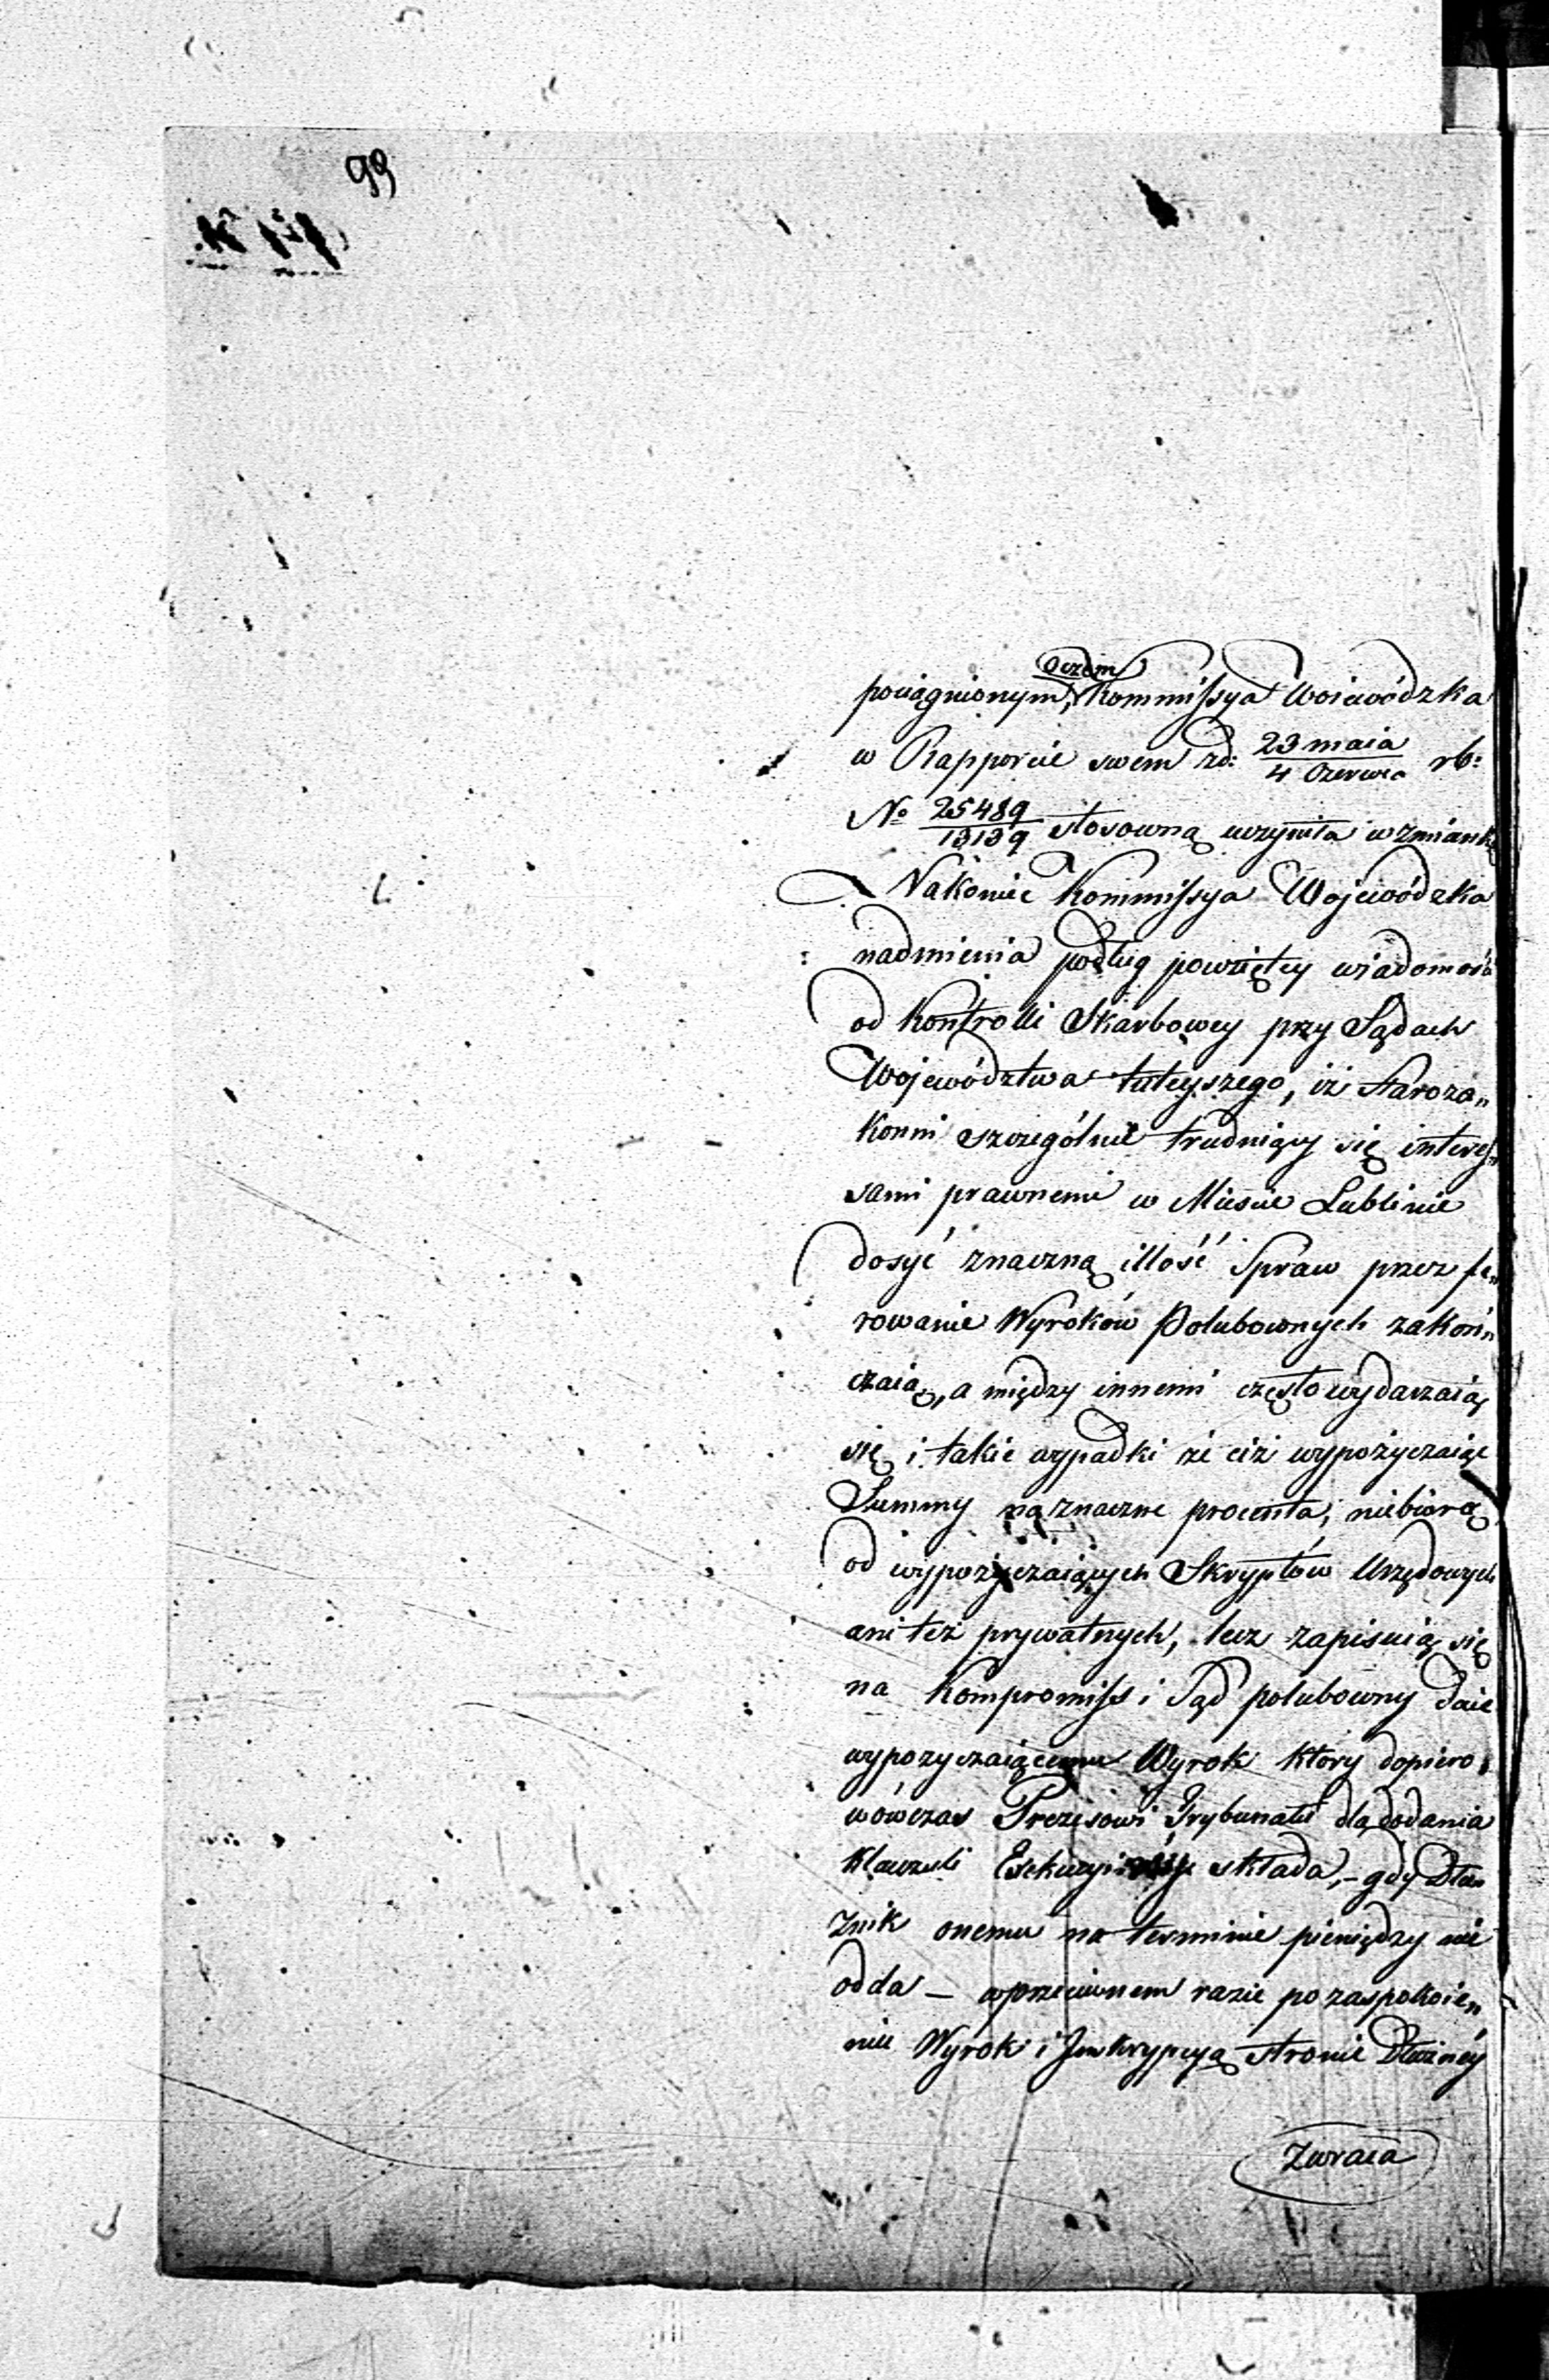 99
oczem
pociągnionym, Kommissya Woiewódzka
w Rapporcie swem zd: 23 maia / 4 Czerwca rb:
No 25489 / 13139 stosowną uczyniła wzmiankę
Nakoniec Kommissya Wojewódzka
nadmienia podług powziętey wiadomości
od Kontrolli Skarbowey przy Sądach
Województwa tuteyszego, iż Staroza„
konni szczególnie trudniący się interes„
sami prawnemi w Mieście Lublinie
dosyć znaczną illość Spraw przez fe„
rowanie Wyroków Polubownych zakoń„
czaią, a między innemi często wydarzaią
się i takie wypadki że ciż wypożyczaiąc
Summy na znaczne procenta, niebiorą
od wypożyczaiących Skryptów Urzędowych
ani też prywatnych, lecz zapisuią się
na Kompromiss i Sąd polubowny daie
wypożyczaiącemu Wyrok który dopiero
wówczas Prezesowi Trybunału dla dodania
Klauzuli składa, - gdy Dłu„
żnik onemu na terminie pieniędzy nie
odda — wprzeciwnem razie po zaspokoie„
niu Wyrok i Inskrypcyą stronie Dłużnéy
Zwraca